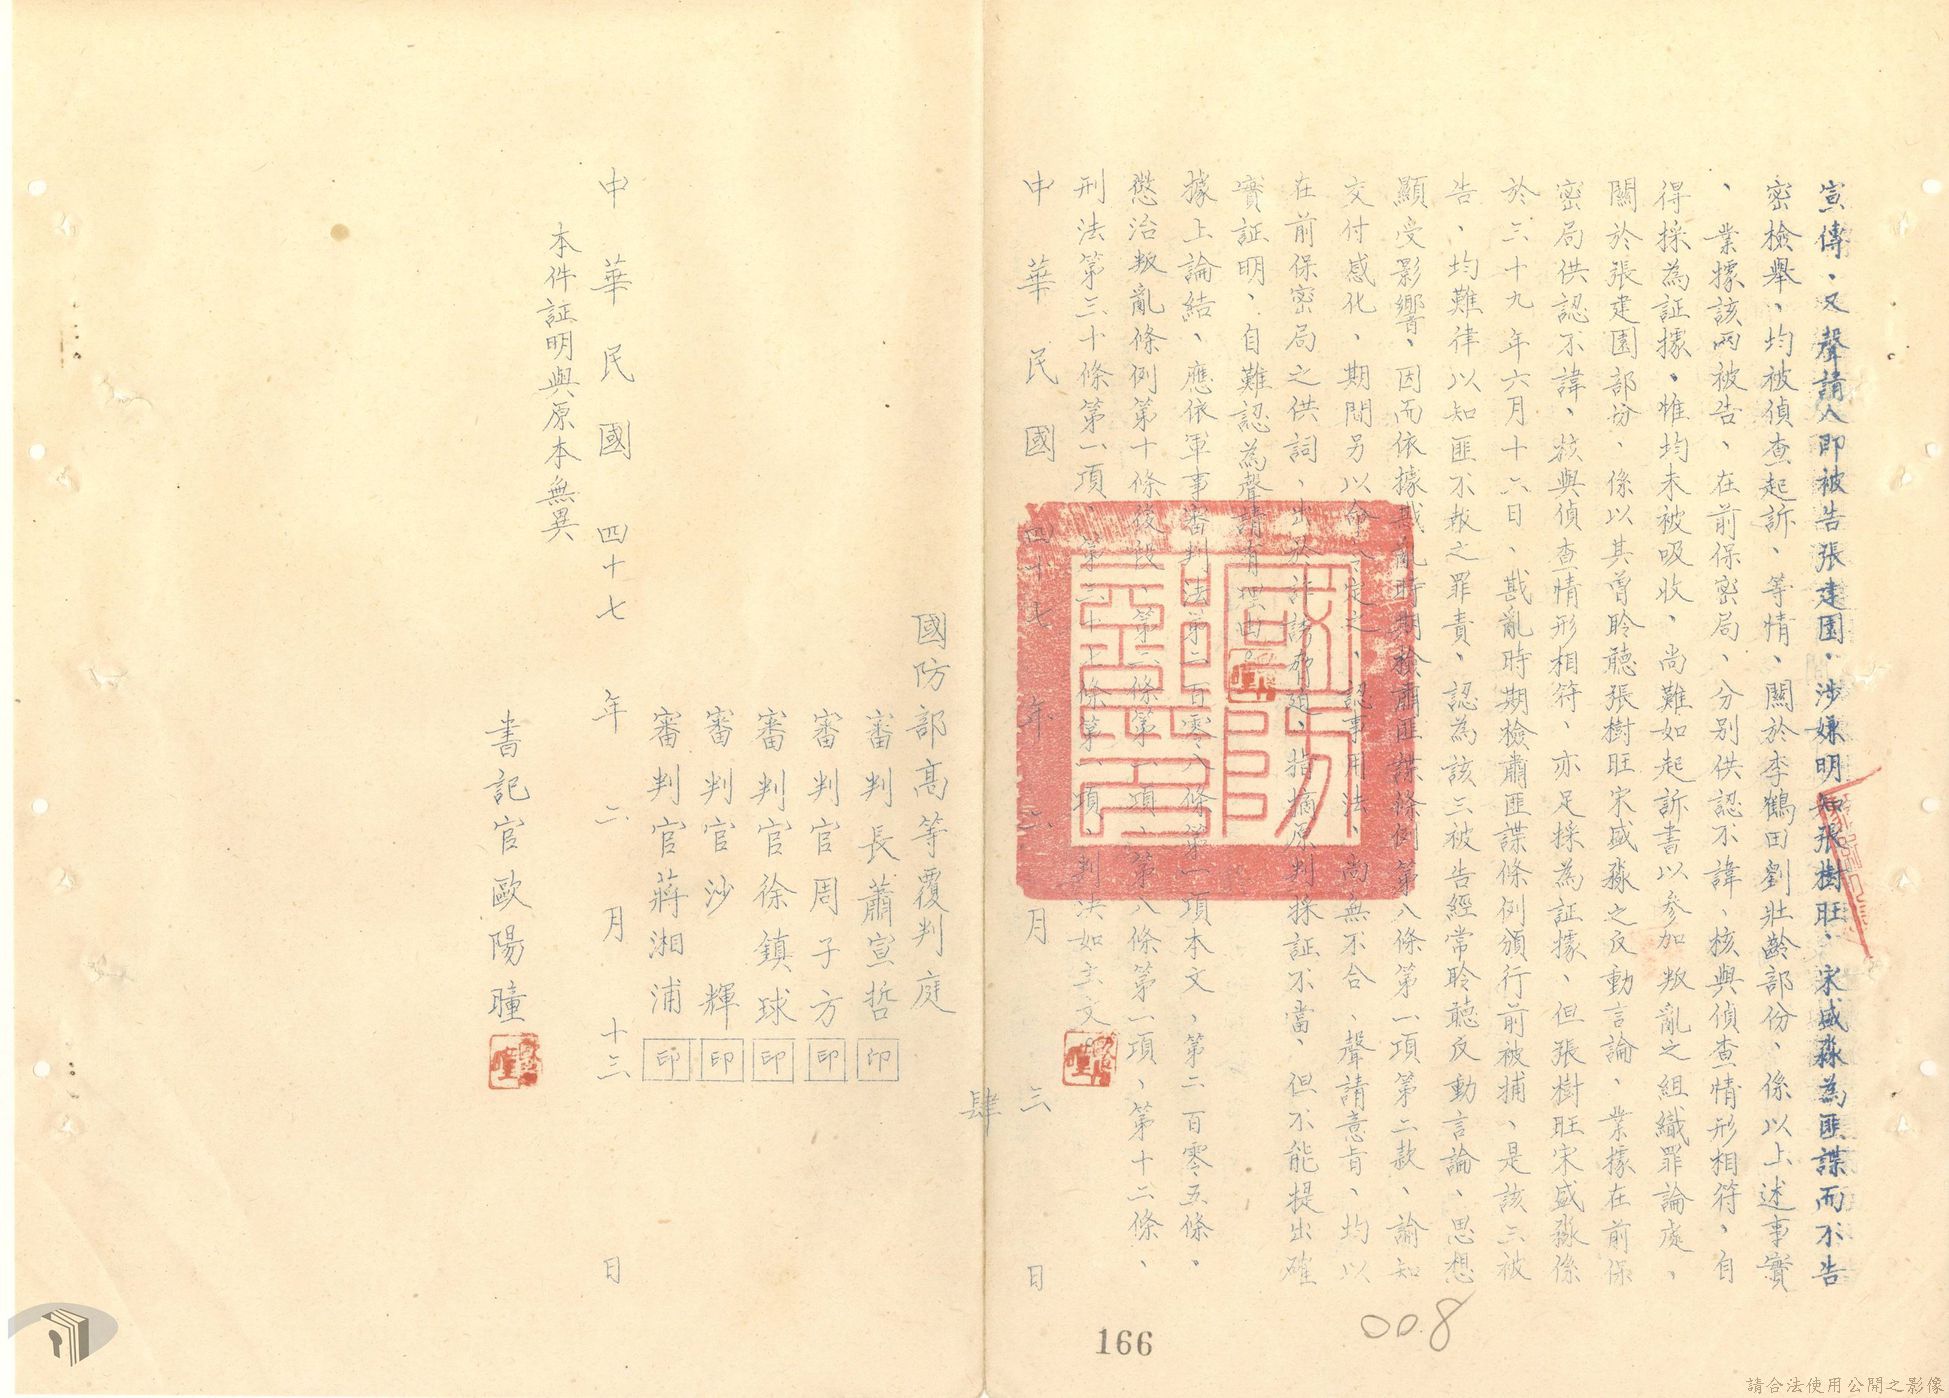 宣傳、又聲請人即被告張建園、涉嫌明知張樹旺、宋盛淼為匪諜而不告
密檢舉、均被偵查起訴、等情、關於李鶴田劉壯齡部份、係以上述事實
、業據該兩被告、在前保密局、分別供認不諱、核與偵查情形相符、自
得採為証據、惟均未被吸收、尚難如起訴書以參加叛亂之組織罪論處、
關於張建園部份、係以其曾聆聽張樹旺宋盛淼之反動言論、業據在前保
密局供認不諱、核與偵查情形相符、亦足採為証據、但張樹旺宋盛淼係
於三十九年六月十六日、戡亂時期檢肅匪諜條例頒行前被捕、是該三被
告、均難律以知匪不報之罪責、認為該三被告經常聆聽反動言論、思想
顯受影響、因而依據戡亂時期檢肅匪諜條例第八條第一項第二款、諭知
交付感化、期間另以命令定之、認事用法、尚無不合、聲請意旨、均以
在前保密局之供詞、出於詐誘脅迫、指摘原判採証不當、但不能提出確
實証明、自難認為聲請有理由。
據上論結、應依軍事審判法第二百零八條第一項本文、第二百零五條、
懲治叛亂條例第十條後段、第二條第一項、第八條第一項、第十二條、
刑法第三十條第一項、第三十七條第一項、判決如主文。
中華民國四十七年二月三日
肆
國防部高等覆判庭
審判長蕭宣哲 印
審判官周子方 印
審判官徐鎮球 印
審判官沙輝 印
審判官蔣湘浦 印
中華民國四十七年二月十三日
本件証明與原本無異
書記官歐陽曈
166
008
請合法使用公開之影像